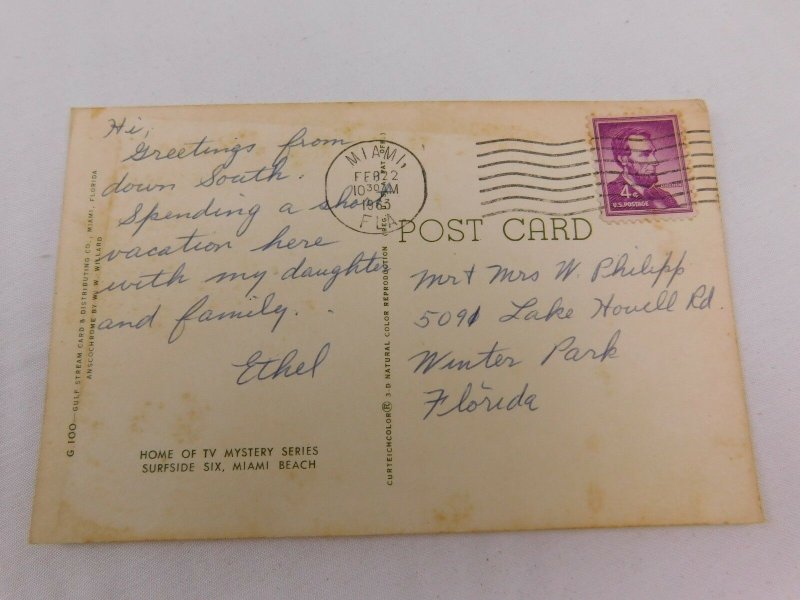 Hi,
Greetings from
down South.
Spending a short
vacation here
with my daughter
and family.
Ethel
HOME OF TV MYSTERY SERIES
SURFSIDE SIX, MIAMI BEACH
G.100—GULF STREAM CARD & DISTRIBUTING CO., MIAMI, FLORIDA
ANSCOCHROME BY W. W. WILLARD
CURTEICHCOLOR® 3-D NATURAL COLOR REPRODUCTION (REG. U.S.A. PAT. OFF.)
MIAMI,
FEB 22
10 30 AM
1963
FLA
4¢
U.S. POSTAGE
POST CARD
Mr & Mrs W. Philipp
5091 Lake Howell Rd.
Winter Park
Florida